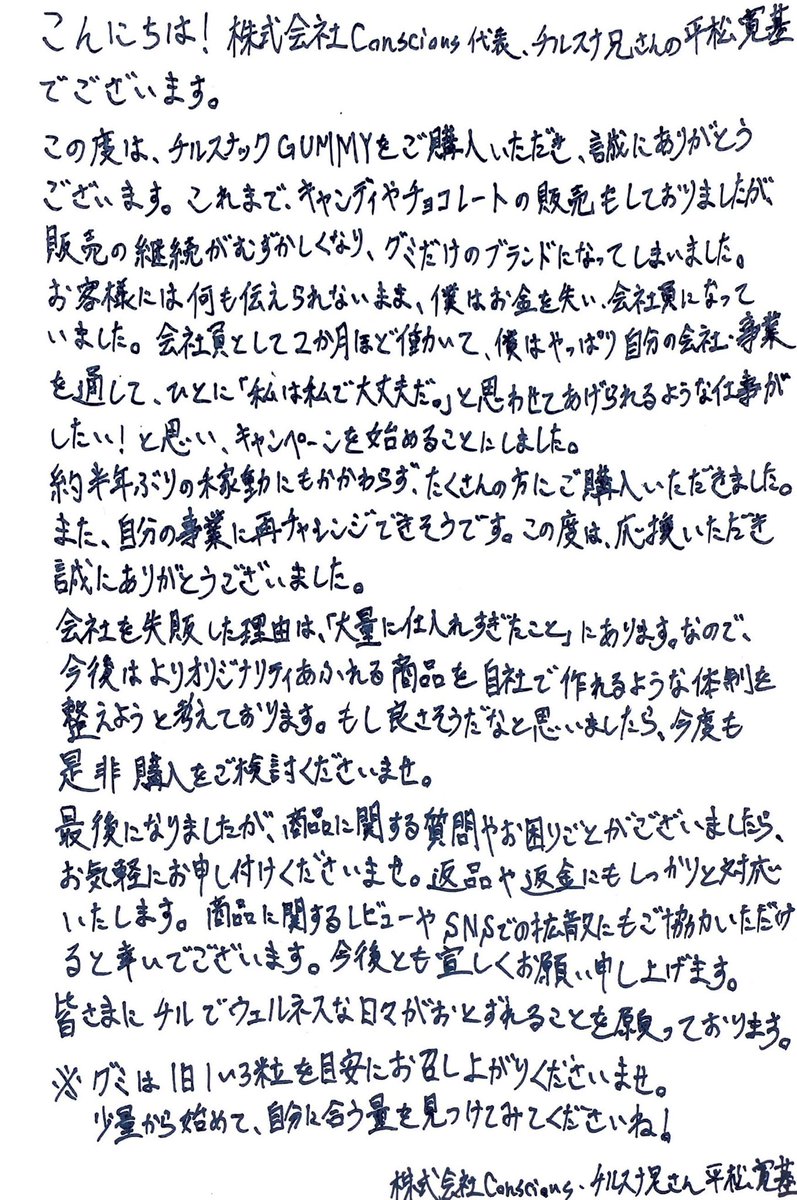 こんにちは！株式会社Conscious代表、チルスナ兄さんの平松寛基
でございます。
この度は、チルスナックGUMMYをご購入いただき、誠にありがとう
ございます。これまで、キャンディやチョコレートの販売もしておりましたが、
販売の継続がむずかしくなり、グミだけのブランドになってしまいました。
お客様には何も伝えられないまま、僕はお金を失い、会社員になって
いました。会社員として2か月ほど働いて、僕はやっぱり自分の会社・事業
を通して、ひとに「私は私で大丈夫だ。」と思わせてあげられるような仕事が
したい！と思い、キャンペーンを始めることにしました。
約半年ぶりの稼動にもかかわらず、たくさんの方にご購入いただきました。
また、自分の事業に再チャレンジできそうです。この度は、応援いただき
誠にありがとうございました。
会社を失敗した理由は、「大量に仕入れすぎたこと」にあります。なので、
今後はよりオリジナリティあふれる商品を自社で作れるような体制を
整えようと考えております。もし良さそうだなと思いましたら、今度も
是非購入をご検討くださいませ。
最後になりましたが、商品に関する質問やお困りごとがございましたら、
お気軽にお申し付けくださいませ。返品や返金にもしっかりと対応
いたします。商品に関するレビューやSNSでの拡散にもご協力いただけ
ると幸いでございます。今後とも宜しくお願い申し上げます。
皆さまにチルでウェルネスな日々がおとずれることを願っております。
※グミは1日1〜3粒を目安にお召し上がりくださいませ。
少量から始めて、自分に合う量を見つけてみてくださいね！
株式会社Conscious・チルスナ兄さん 平松寛基